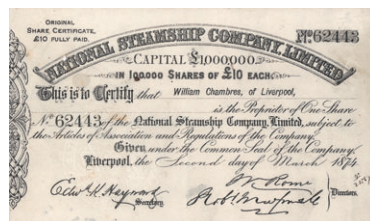 ORIGINAL
SHARE CERTIFICATE,
£10 FULLY PAID.
No. 62443
NATIONAL STEAMSHIP COMPANY, LIMITED
CAPITAL £1,000,000
IN 100,000 SHARES OF £10 EACH.
This is to Certify that William Chambres, of Liverpool,
is the Proprietor of One Share
No. 62443 of the National Steamship Company, Limited, subject to
the Articles of Association and Regulations of the Company.
Given under the Common Seal of the Company,
Liverpool, the Second day of March 1874
W Rome
Edwd. Hayward
Secretary.
Directors.